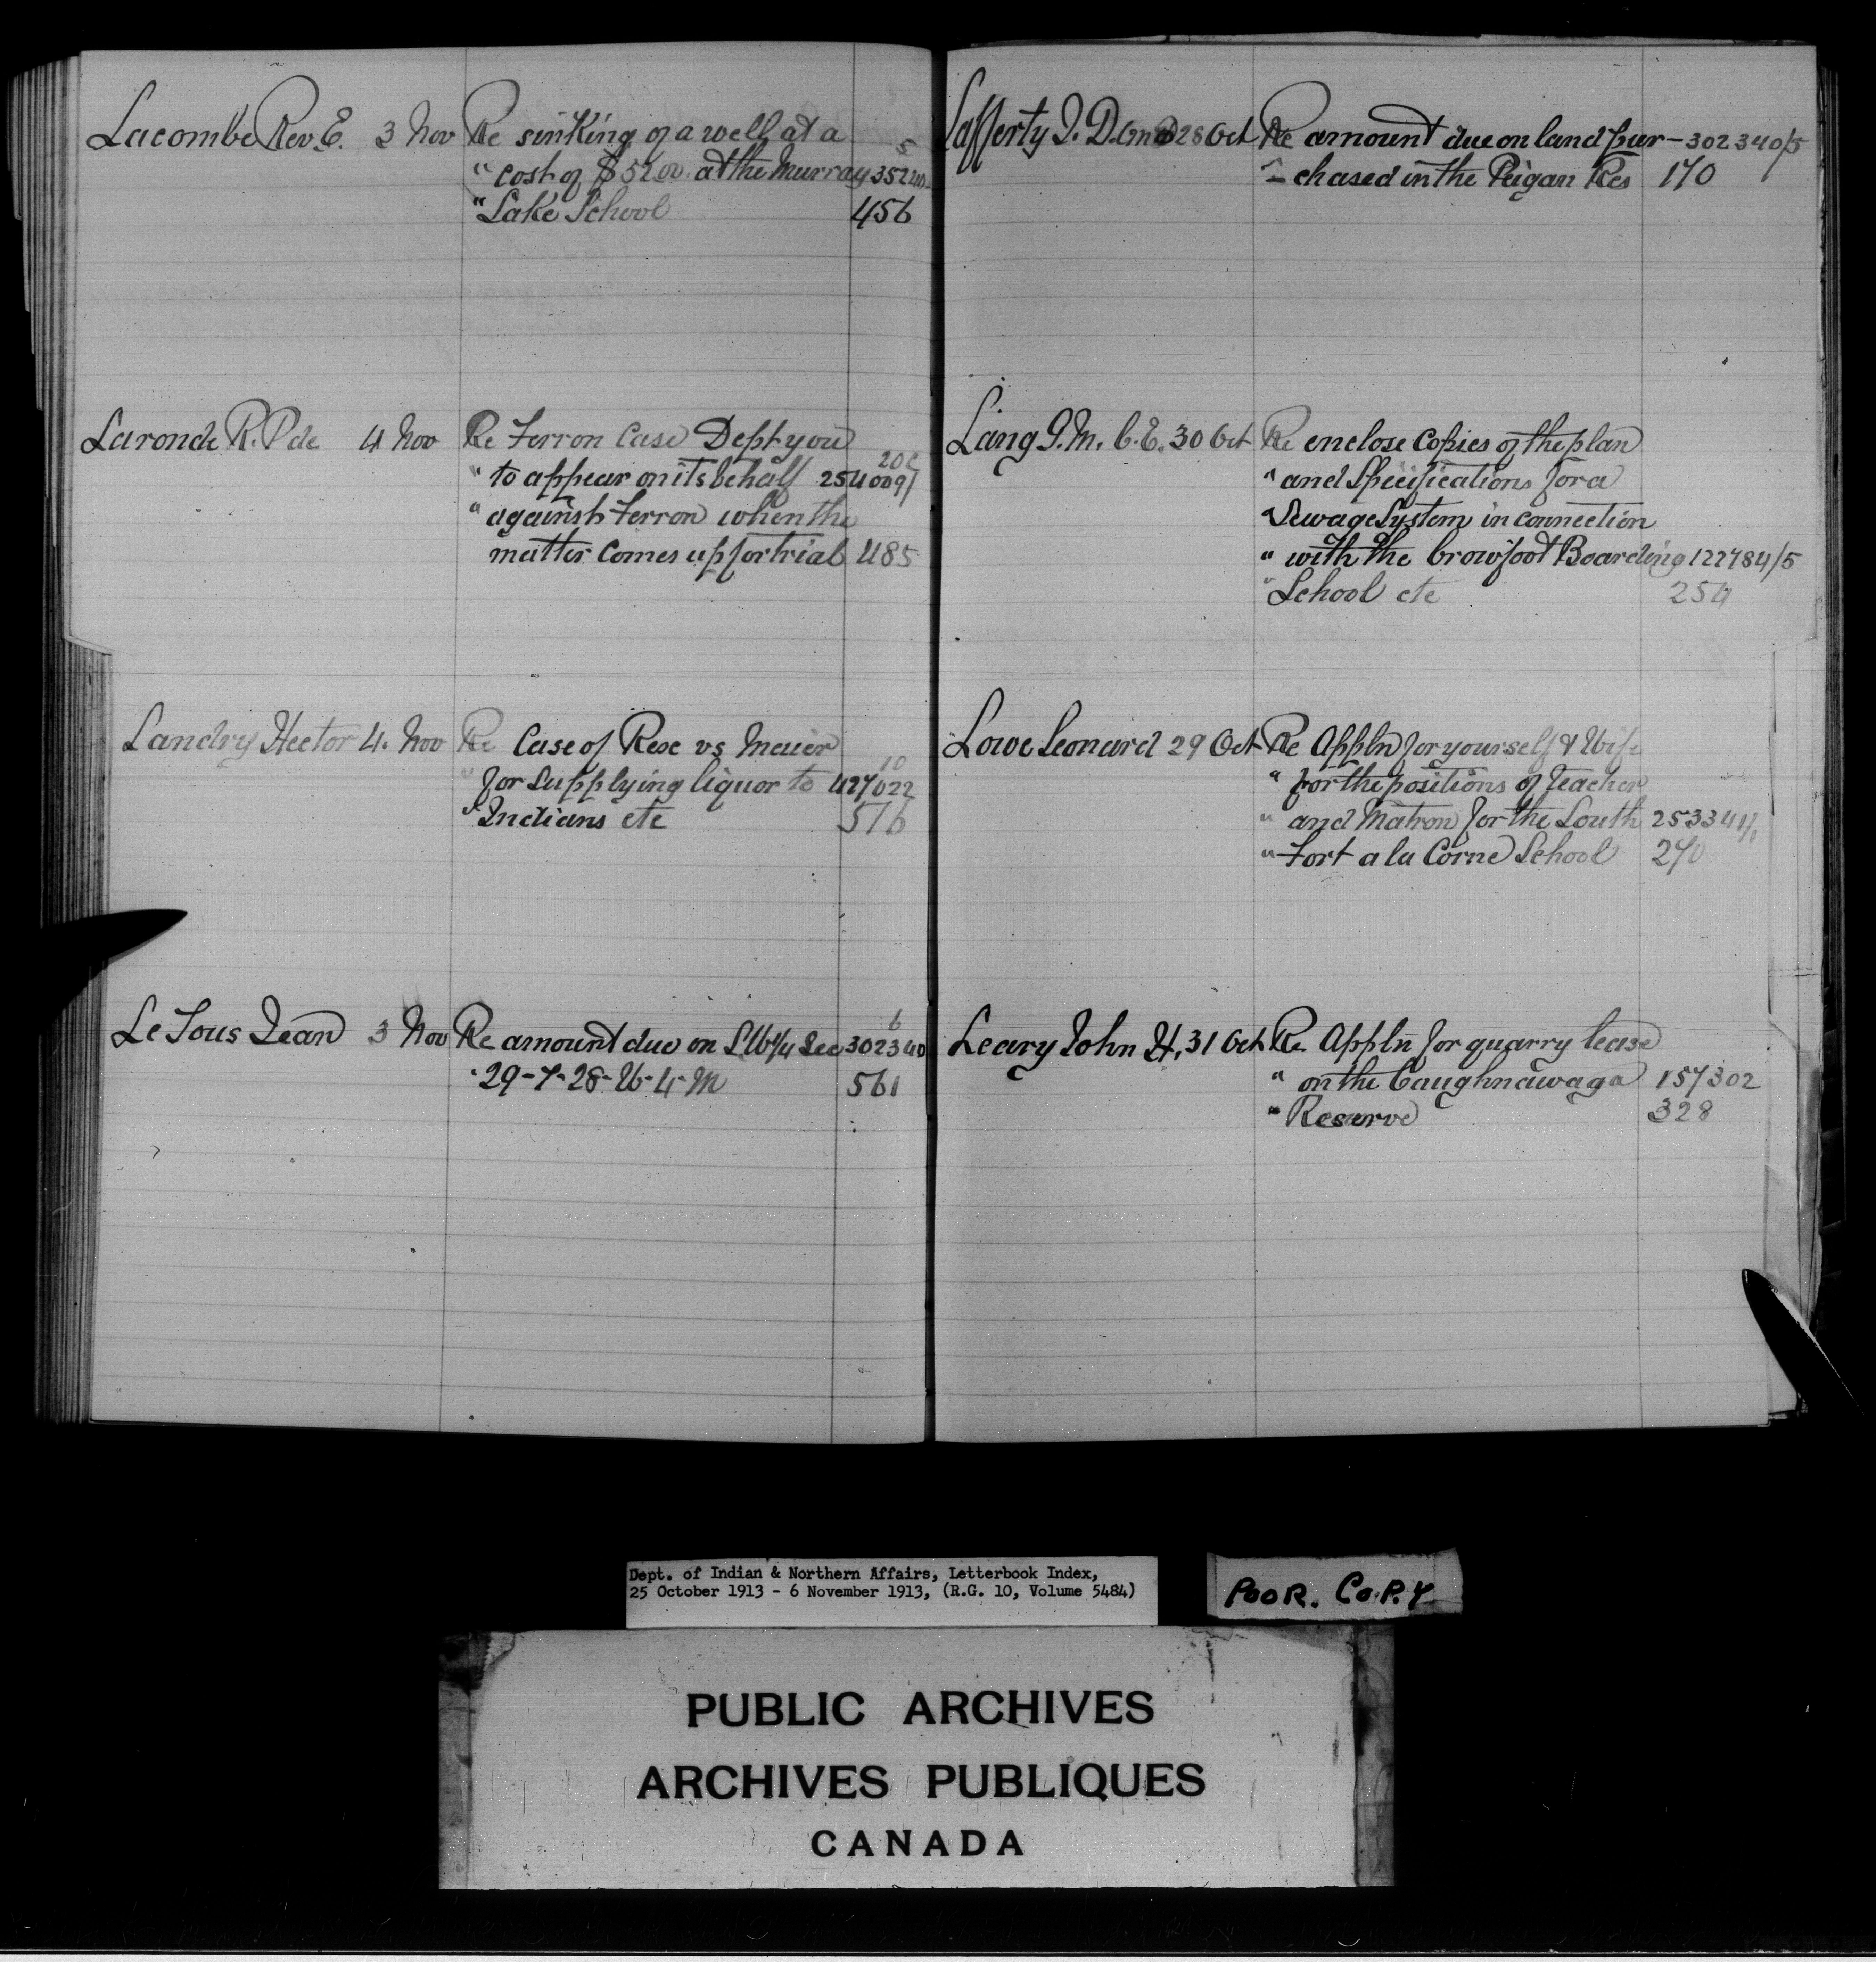 Lacombe Rev. E. 3 Nov Re sinking of a well at a 5
" cost of $52.00 at the Murray 352210
" Lake School 456
Laronde R. P de 4 Nov Re Ferron Case Dept you
" to appear on its behalf 254009/
" against Ferron when the
matter comes up for trial 485
Landry Hector 4. Nov Re Case of Rese vs 10
" for supplying liquor to 427022
" Indians etc 516
Le Sous Jean 3 Nov Re amount due on S.W 1/4 Sec 302340 6
" 29-7-28-W-4-M 561
Lafferty J. D. 28 Oct Re amount due on land pur- 302340/5
- chased in the Peigan Res 170
Laing G. M. C. E. 30 Oct Re enclose Copies of the plan
" and Specifications for a
" Sewage System in connection
" with the Crowfoot Boarding 122784/5
" School etc 254
Lowe Leonard 29 Oct Re Appln for yourself & Wife
" for the positions of Teacher
" and Matron for the South
" Fort a la Corne School 270
Leary John H. 31 Oct Re Appln for quarry lease
" on the Caughnawaga 157302
" Reserve 328
Dept. of Indian & Northern Affairs, Letterbook Index,
25 October 1913 - 6 November 1913, (R.G. 10, Volume 5484)
POOR. COPY
PUBLIC ARCHIVES
ARCHIVES PUBLIQUES
CANADA